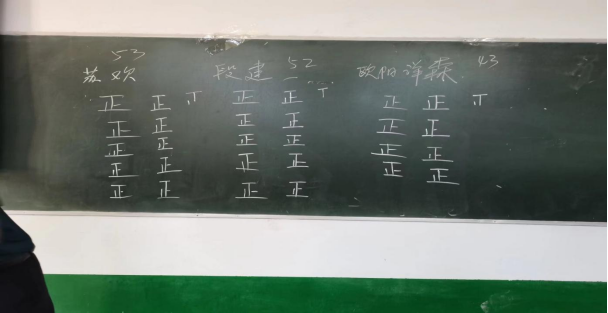 苏欢 53 段建 52 欧阳祥森 43
正 正 丅 正 正 丅 正 正 丅
正 正 正 正 正 正
正 正 正 正 正 正
正 正 正 正 正 正
正 正 正 正